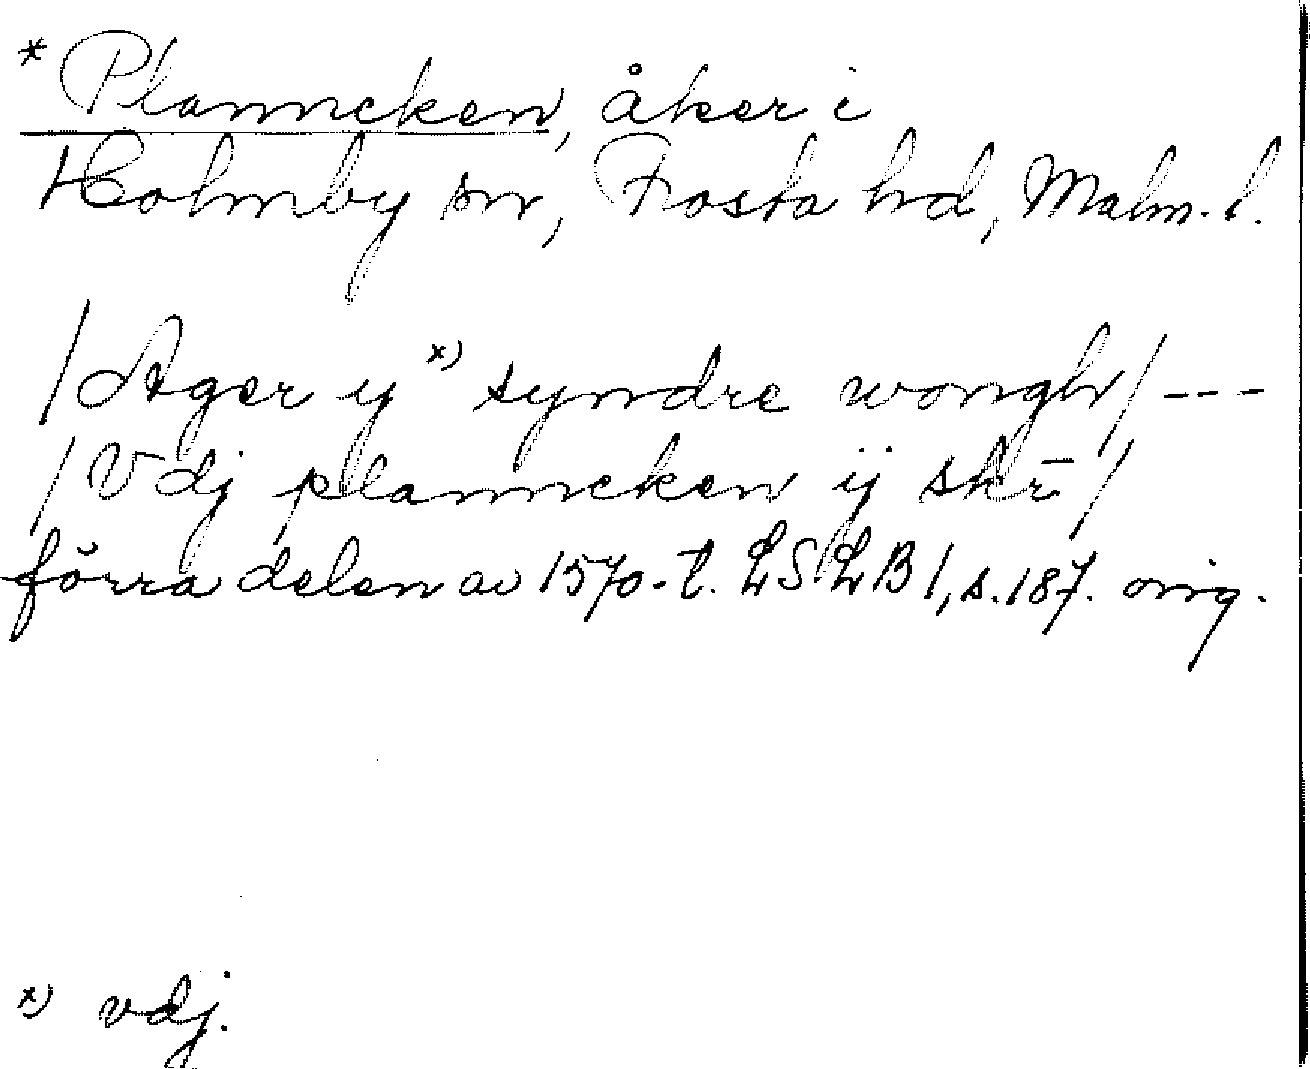 * Planncken, åker i
Holmby sn, Frosta hd, Malm. l.
/Ager y x) syndre wongh/ ---
/Vdj planncken ij skr̄/
förra delen av 1570-t. LSLB 1, s. 187. orig.
x) vdj.